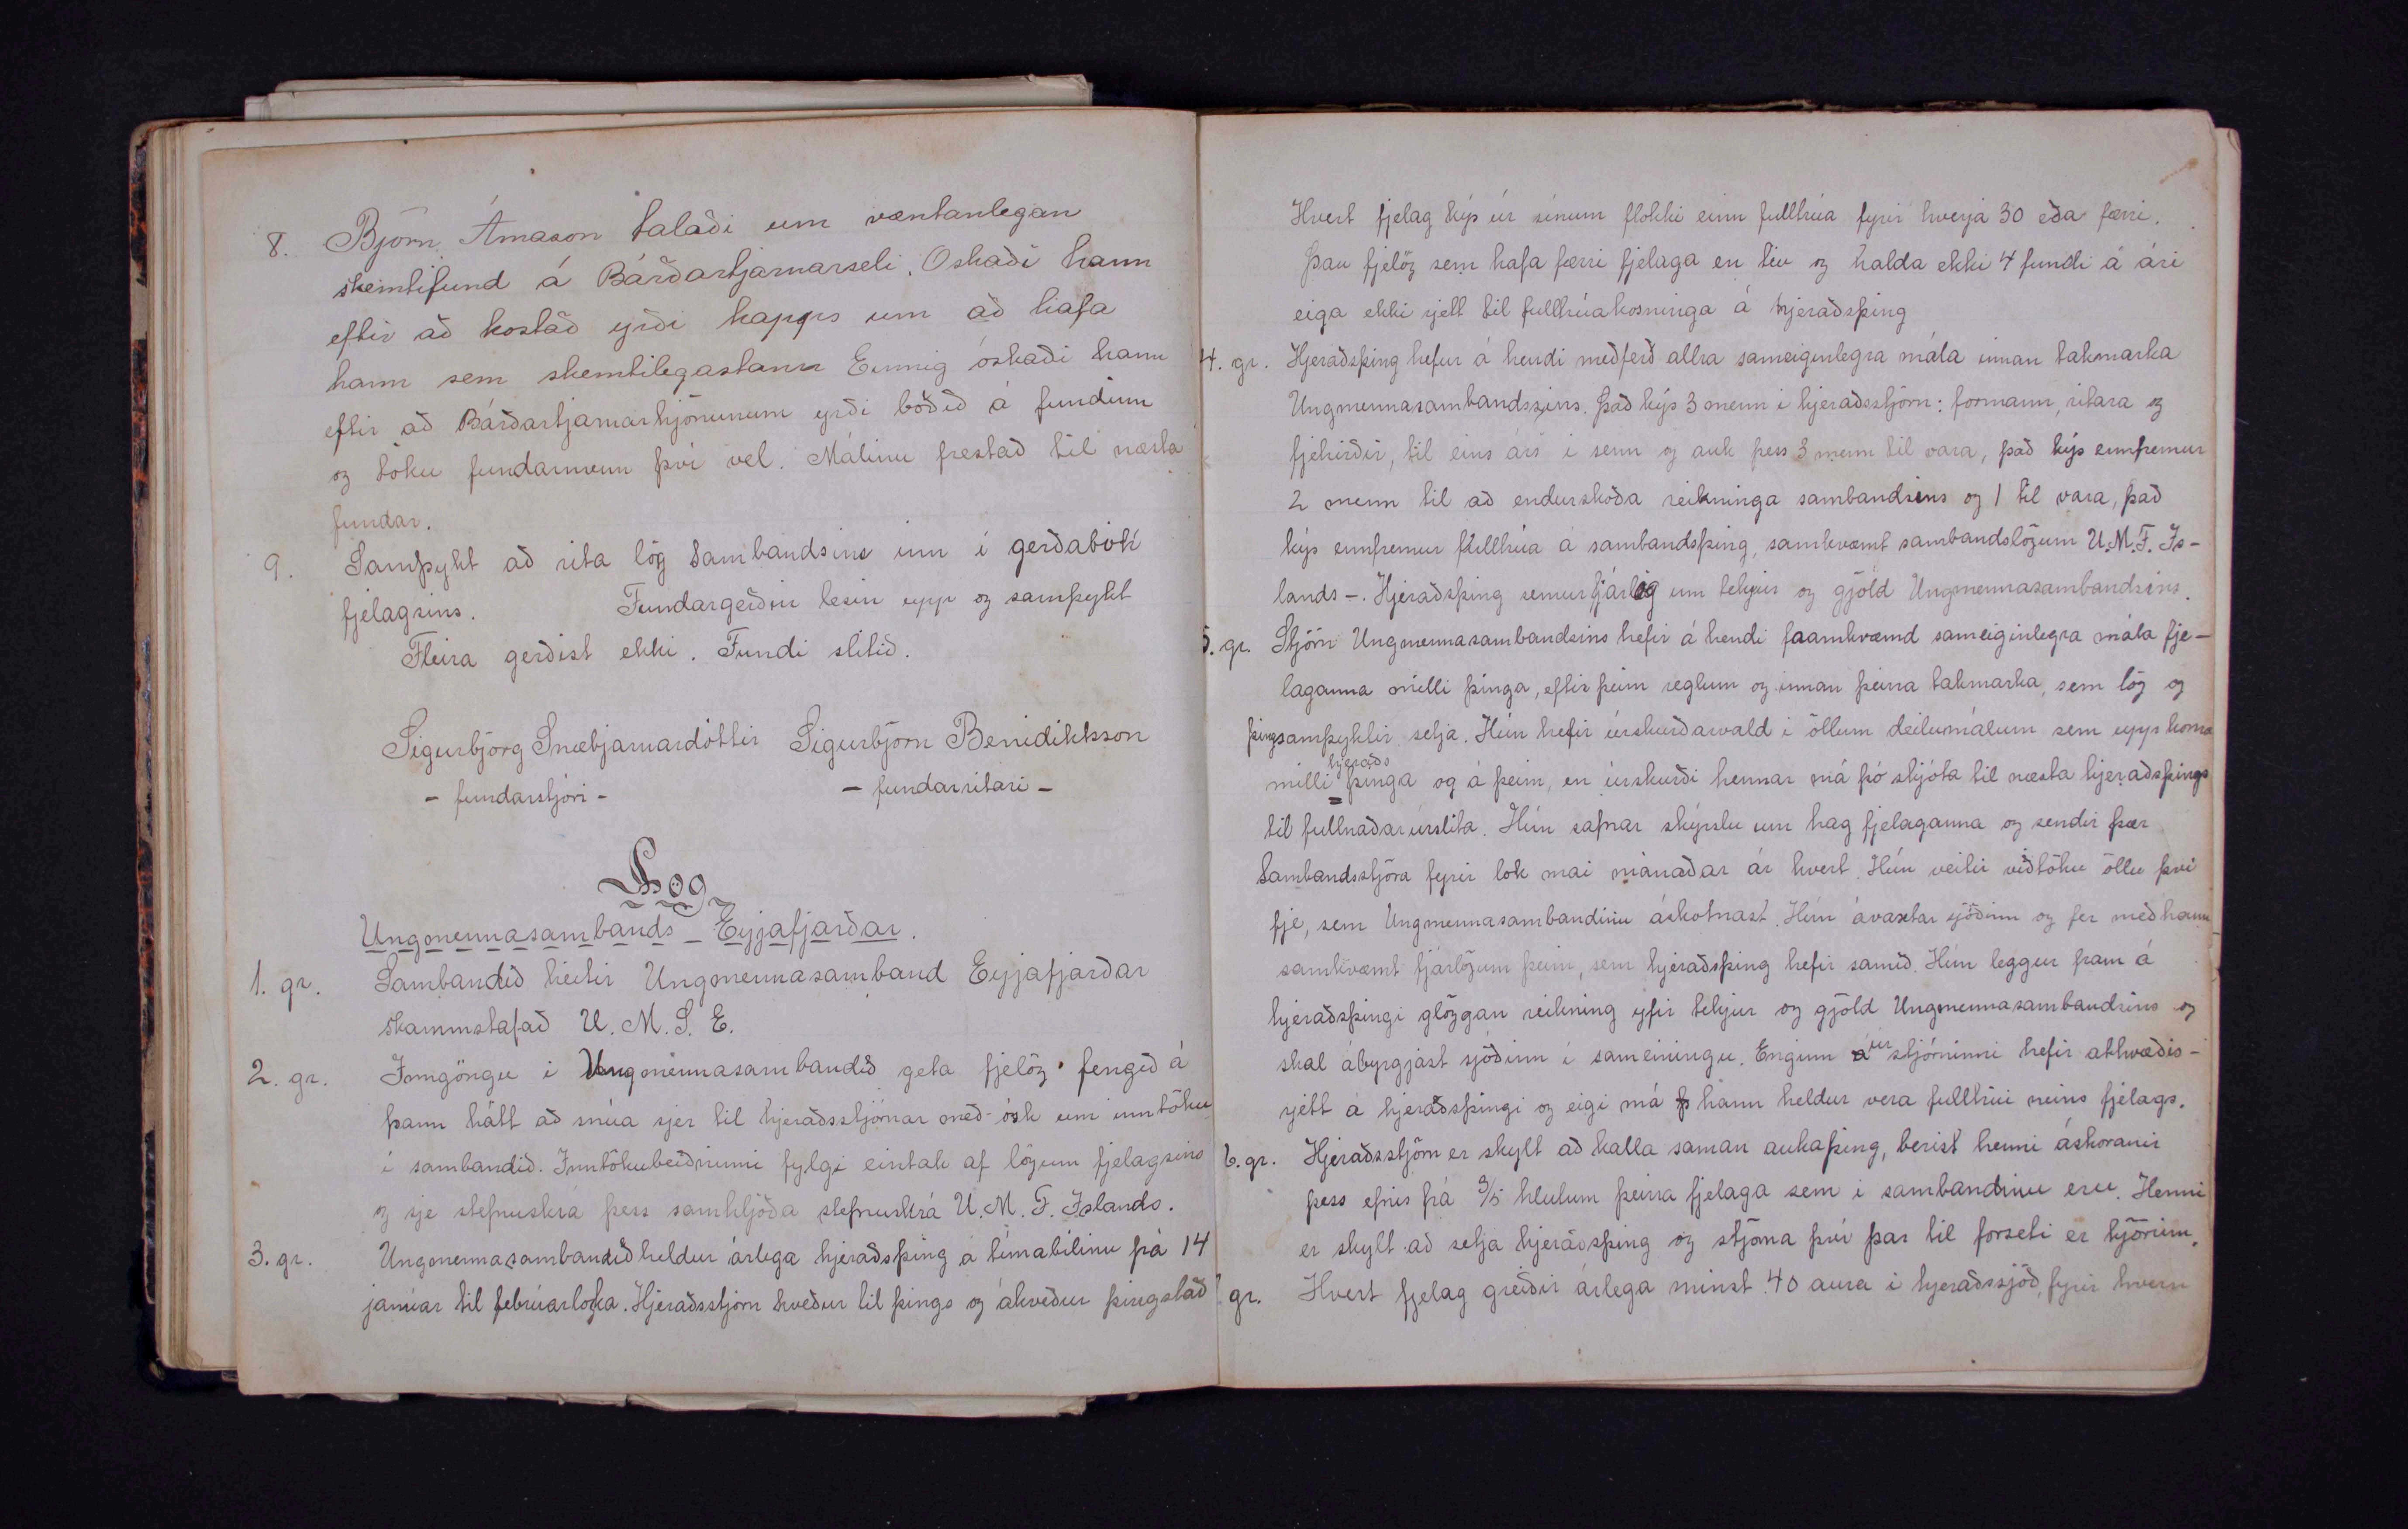 8. Björn Árnason talaði um væntanlegan
skemtifund á Bárðartjarnarseli. Óskaði hann
eftir að kostað yrði kapps um að hafa
hann sem skemtilegastann Einnig óskaði hann
eftir að Bárðartjarnarhjónunum yrði boðið á fundinn
og tóku fundarmenn því vel. Málinu frestað til næsta
fundar.
9. Samþykt að rita lög Sambandsins inn í gerðabók
fjelagsins. Fundargerðin lesin upp og samþykt
Fleira gerðist ekki. Fundi slitið.
Sigurbjörg Snæbjarnardóttir Sigurbjörn Benidiktsson
- fundarstjóri - - fundarritari -
Lög
Ungmennasambands - Eyjafjarðar.
1. gr. Sambandið heitir Ungmennasamband Eyjafjarðar
skammstafað U. M. S. E.
2. gr. Inngöngu í Ungmennasambandið geta fjelög fengið á
þann hátt að snúa sjer til hjeraðsstjórnar með ósk um inntöku
í sambandið. Inntökubeiðninni fylgi eintak af lögum fjelagsins
og sje stefnuskrá þess samhljóða stefnuskrá U. M. F. Íslands.
3. gr. Ungmennasambandið heldur árlega hjeraðsþing á tímabilinu frá 14
janúar til febrúarloka. Hjeraðsstjórn kveður til þings og ákveður þingstað
Hvert fjelag kýs úr sínum flokki einn fulltrúa fyrir hverja 30 eða færri.
Þau fjelög sem hafa færri fjelaga en tíu og halda ekki 4 fundi á ári
eiga ekki rjett til fulltrúakosninga á hjeraðsþing
4. gr. Hjeraðsþing hefur á hendi meðferð allra sameiginlegra mála innan takmarka
Ungmennasambandsins. Það kýs 3 menn í hjeraðsstjórn: formann, ritara og
fjehirðir, til eins árs í senn og auk þess 3 menn til vara, það kýs ennfremur
2 menn til að endurskoða reikninga sambandsins og 1 til vara, það
kýs ennfremur fulltrúa á sambandsþing, samkvæmt sambandslögum U.M.F. Ís-
lands -. Hjeraðsþing semur fjárlög um tekjur og gjöld Ungmennasambandsins.
5. gr. Stjórn Ungmennasambandsins hefir á hendi framkvæmd sameiginlegra mála fje-
laganna milli þinga, eftir þeim reglum og innan þeirra takmarka, sem lög og
þingsamþyktir setja. Hún hefir úrskurðarvald í öllum deilumálum sem upp koma
milli hjeraðs=þinga og á þeim, en úrskurði hennar má þó skjóta til næsta hjeraðsþings
til fullnaðarúrslita. Hún safnar skýrslu um hag fjelaganna og sendir þær
Sambandsstjóra fyrir lok mai mánaðar ár hvert. Hún veitir viðtöku öllu því
fje, sem Ungmennasambandinu áskotnast. Hún ávaxtar sjóðinn og fer með hann
samkvæmt fjárlögum þeim, sem hjeraðsþing hefir samið. Hún leggur fram á
hjeraðsþingi glöggan reikning yfir tekjur og gjöld Ungmennasambandsins og
skal ábyrgjast sjóðinn í sameiningu. Enginn úr stjórninni hefir atkvæðis-
rjett á hjeraðsþingi og eigi má hann heldur vera fulltrúi neins fjelags.
6. gr. Hjeraðsstjórn er skylt að kalla saman aukaþing, berist henni áskoranir
þess efnis frá 3/5 hlutum þeirra fjelaga sem í sambandinu eru. Henni
er skylt að setja hjeraðsþing og stjórna því þar til forseti er kjörinn.
gr. Hvert fjelag greiðir árlega minst 40 aura í hjeraðssjóð, fyrir hvern